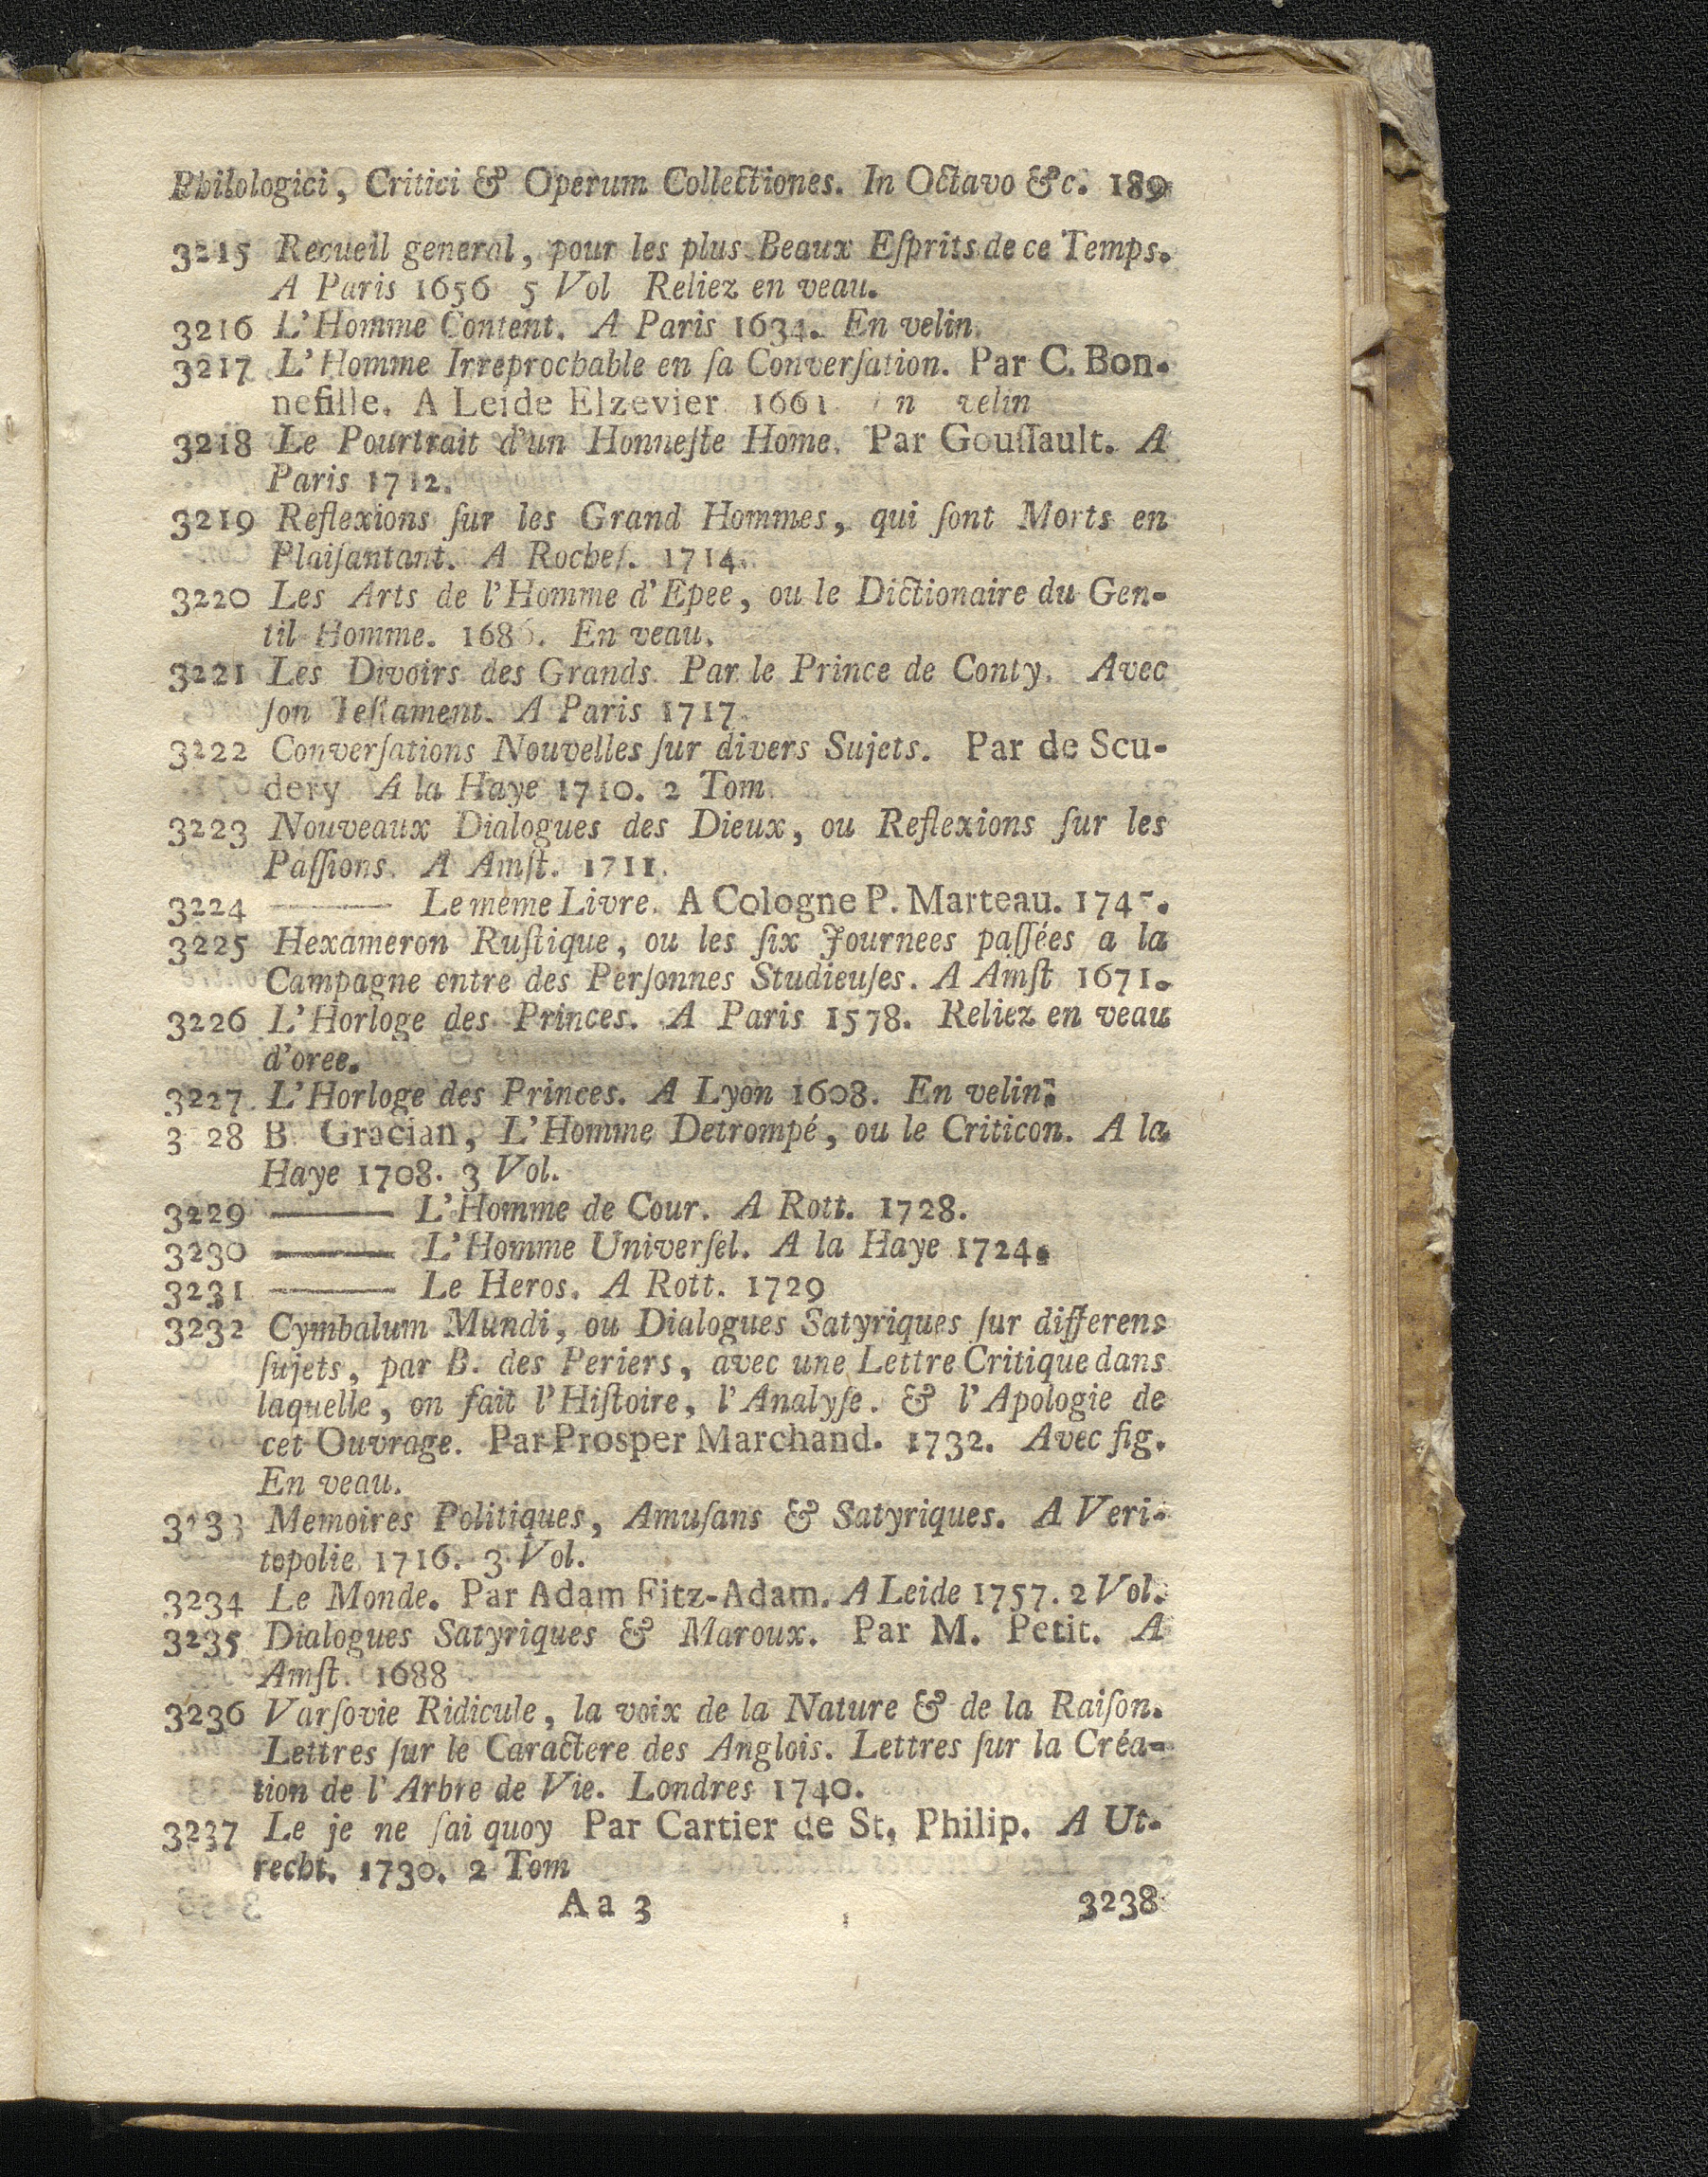 Philologici, Critici & Operum Collectiones. In Octavo &c. 189
3215 Recueil general, pour les plus Beaux Eſprits de ce Temps.
A Paris 1656 5 Vol Reliez en veau.
3216 L'Homme Content. A Paris 1634. En velin.
3217 L'Homme Irreprochable en ſa Converſation. Par C. Bon-
nefille. A Leide Elzevier 1661. n velin
3218 Le Pourtrait d'un Honneſte Home. Par Gouſſault. A
Paris 1712.
3219 Reflexions ſur les Grand Hommes, qui ſont Morts en
Plaiſantant. A Rocheſ. 1714.
3220 Les Arts de l'Homme d'Epee, ou le Dictionaire du Gen-
til Homme. 1686. En veau.
3221 Les Divoirs des Grands. Par le Prince de Conty. Avec
ſon Teſtament. A Paris 1717.
3222 Converſations Nouvelles ſur divers Sujets. Par de Scu-
dery A la Haye 1710. 2 Tom.
3223 Nouveaux Dialogues des Dieux, ou Reflexions ſur les
Paſſions. A Amſt. 1711.
3224 ——— Le même Livre. A Cologne P. Marteau.
3225 Hexameron Ruſtique, ou les ſix Journees paſſées a la
Campagne entre des Perſonnes Studieuſes. A Amſt 1671.
3226 L'Horloge des Princes. A Paris 1578. Reliez en veau
d'oree.
3227 L'Horloge des Princes. A Lyon 1608. En velin.
3 28 B. Gracian, L'Homme Detrompé, ou le Criticon. A la
Haye 1708. 3 Vol.
3229 ——— L'Homme de Cour. A Rott. 1728.
3230 ——— L'Homme Univerſel. A la Haye 1724.
3231 ——— Le Heros. A Rott. 1729
3232 Cymbalum Mundi, ou Dialogues Satyriques ſur differens
ſujets, par B. des Periers, avec une Lettre Critique dans
laquelle, on fait l'Hiſtoire, l'Analyſe. & l'Apologie de
cet Ouvrage. Par Prosper Marchand. 1732. Avec fig.
En veau.
3233 Memoires Politiques, Amuſans & Satyriques. A Veri-
topolie 1716. 3 Vol.
3234 Le Monde. Par Adam Fitz-Adam. A Leide 1757. 2 Vol.
3235 Dialogues Satyriques & Maroux. Par M. Petit. A
Amſt. 1688
3236 Varſovie Ridicule, la voix de la Nature & de la Raiſon.
Lettres ſur le Caractere des Anglois. Lettres ſur la Créa-
tion de l'Arbre de Vie. Londres 1740.
3237 Le je ne ſai quoy Par Cartier de St, Philip. A Ut-
recht. 1730. 2 Tom
A a 3 3238